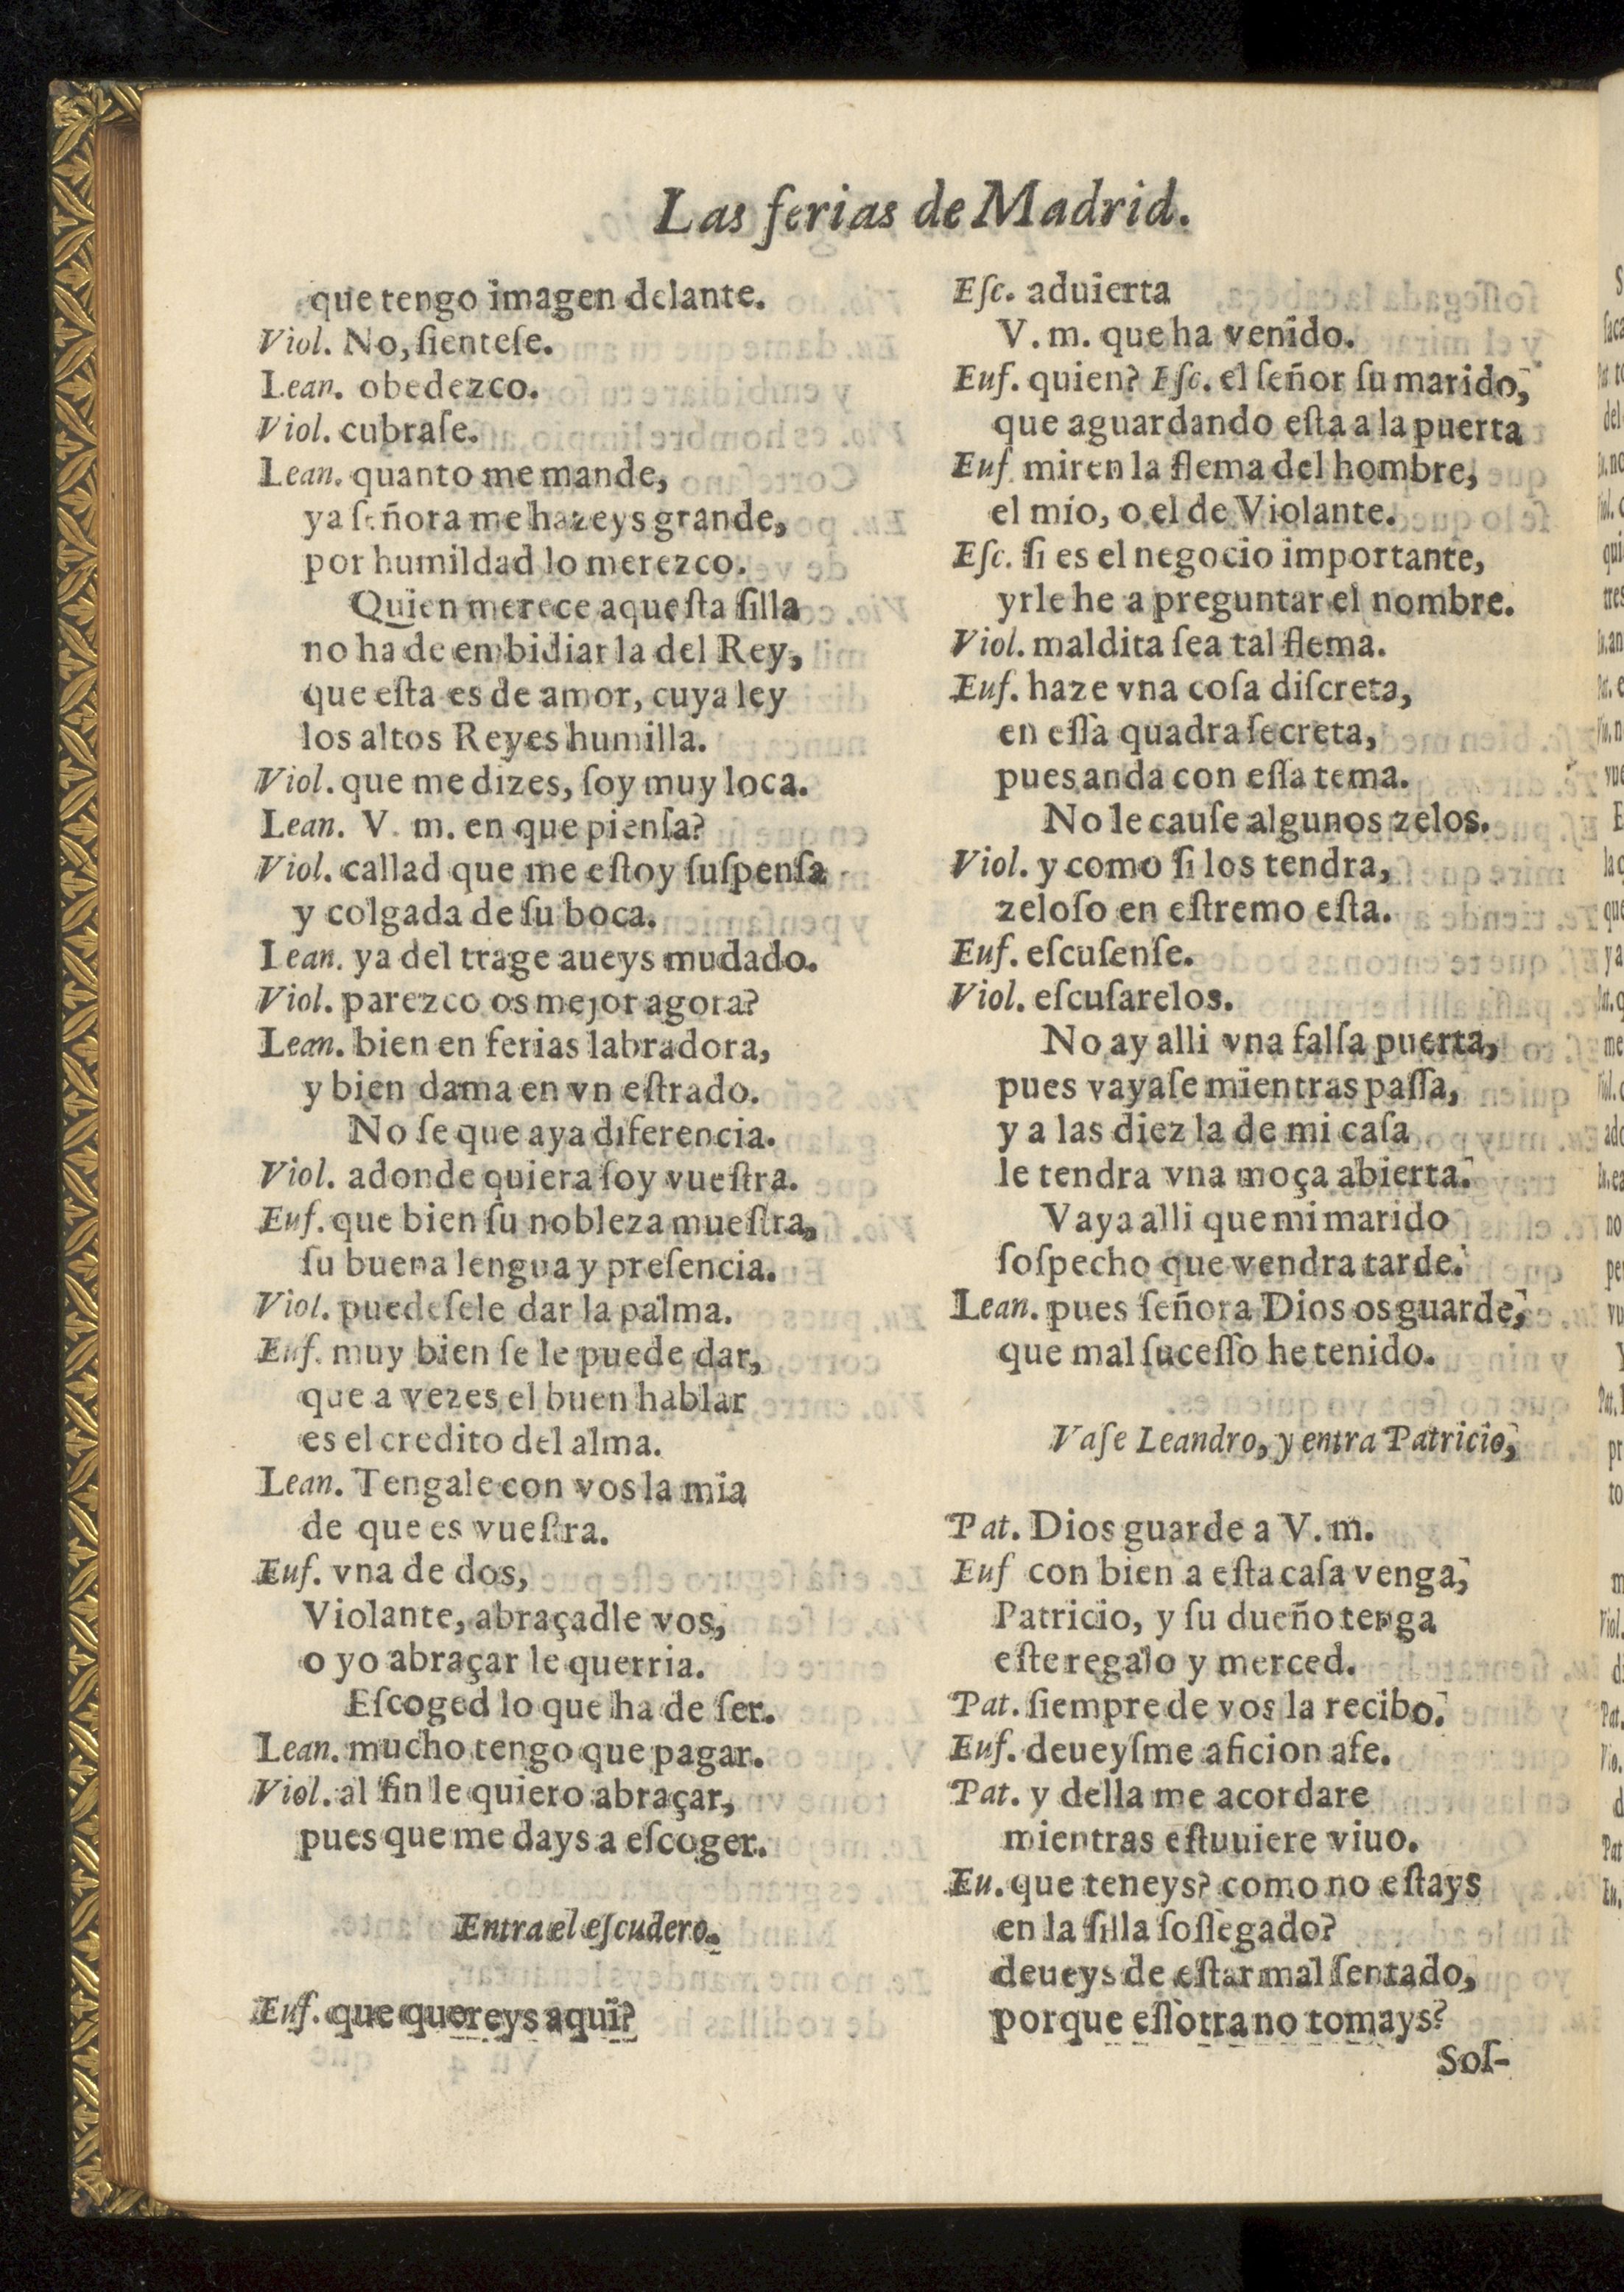 Las ferias de Madrid.
que tengo imagen delante.
Viol. No, ſienteſe.
Lean. obedezco.
Viol. cubraſe.
Lean. quanto me mande,
ya ſeñora me hazeys grande,
por humildad lo merezco.
Quien merece aqueſta ſilla
no ha de embidiar la del Rey,
que eſta es de amor, cuya ley
los altos Reyes humilla.
Viol. que me dizes, ſoy muy loca.
Lean. V. m. en que pienſa?
Viol. callad que me eſtoy ſuſpenſa
y colgada de ſu boca.
Lean. ya del trage aueys mudado.
Viol. parezco os mejor agora?
Lean. bien en ferias labradora,
y bien dama en vn eſtrado.
No ſe que aya diferencia.
Viol. adonde quiera ſoy vueſtra.
Euf. que bien ſu nobleza mueſtra,
ſu buena lengua y preſencia.
Viol. puedeſele dar la palma.
Euf. muy bien ſe le puede dar,
que a vezes el buen hablar
es el credito del alma.
Lean. Tengale con vos la mia
de que es vueſtra.
Euf. vna de dos,
Violante, abraçadle vos,
o yo abraçar le querria.
Eſcoged lo que ha de ſer.
Lean. mucho tengo que pagar.
Viol. al fin le quiero abraçar,
pues que me days a eſcoger.
Entra el eſcudero.
Euf. que quereys aqui?
Eſc. aduierta
V. m. que ha venido.
Euf. quien? Eſc. el ſeñor ſu marido,
que aguardando eſta a la puerta
Euf. miren la flema del hombre,
el mio, o el de Violante.
Eſc. ſi es el negocio importante,
yrle he a preguntar el nombre.
Viol. maldita ſea tal flema.
Euf. haze vna coſa diſcreta,
en eſſa quadra ſecreta,
pues anda con eſſa tema.
No le cauſe algunos zelos.
Viol. y como ſi los tendra,
zeloſo en eſtremo eſta.
Euf. eſcuſenſe.
Viol. eſcuſarelos.
No ay alli vna falſa puerta,
pues vayaſe mientras paſſa,
y a las diez la de mi caſa
le tendra vna moça abierta.
Vaya alli que mi marido
ſoſpecho que vendra tarde.
Lean. pues ſeñora Dios os guarde,
que mal ſuceſſo he tenido.
Vaſe Leandro, y entra Patricio,
Pat. Dios guarde a V. m.
Euf con bien a eſta caſa venga,
Patricio, y ſu dueño tenga
eſte regalo y merced.
Pat. ſiempre de vos la recibo.
Euf. deueyſme aficion afe.
Pat. y della me acordare
mientras eſtuuiere viuo.
Eu. que teneys? como no eſtays
en la ſilla ſoſſegado?
deueys de eſtar mal ſentado,
porque eſſotra no tomays?
Soſ-